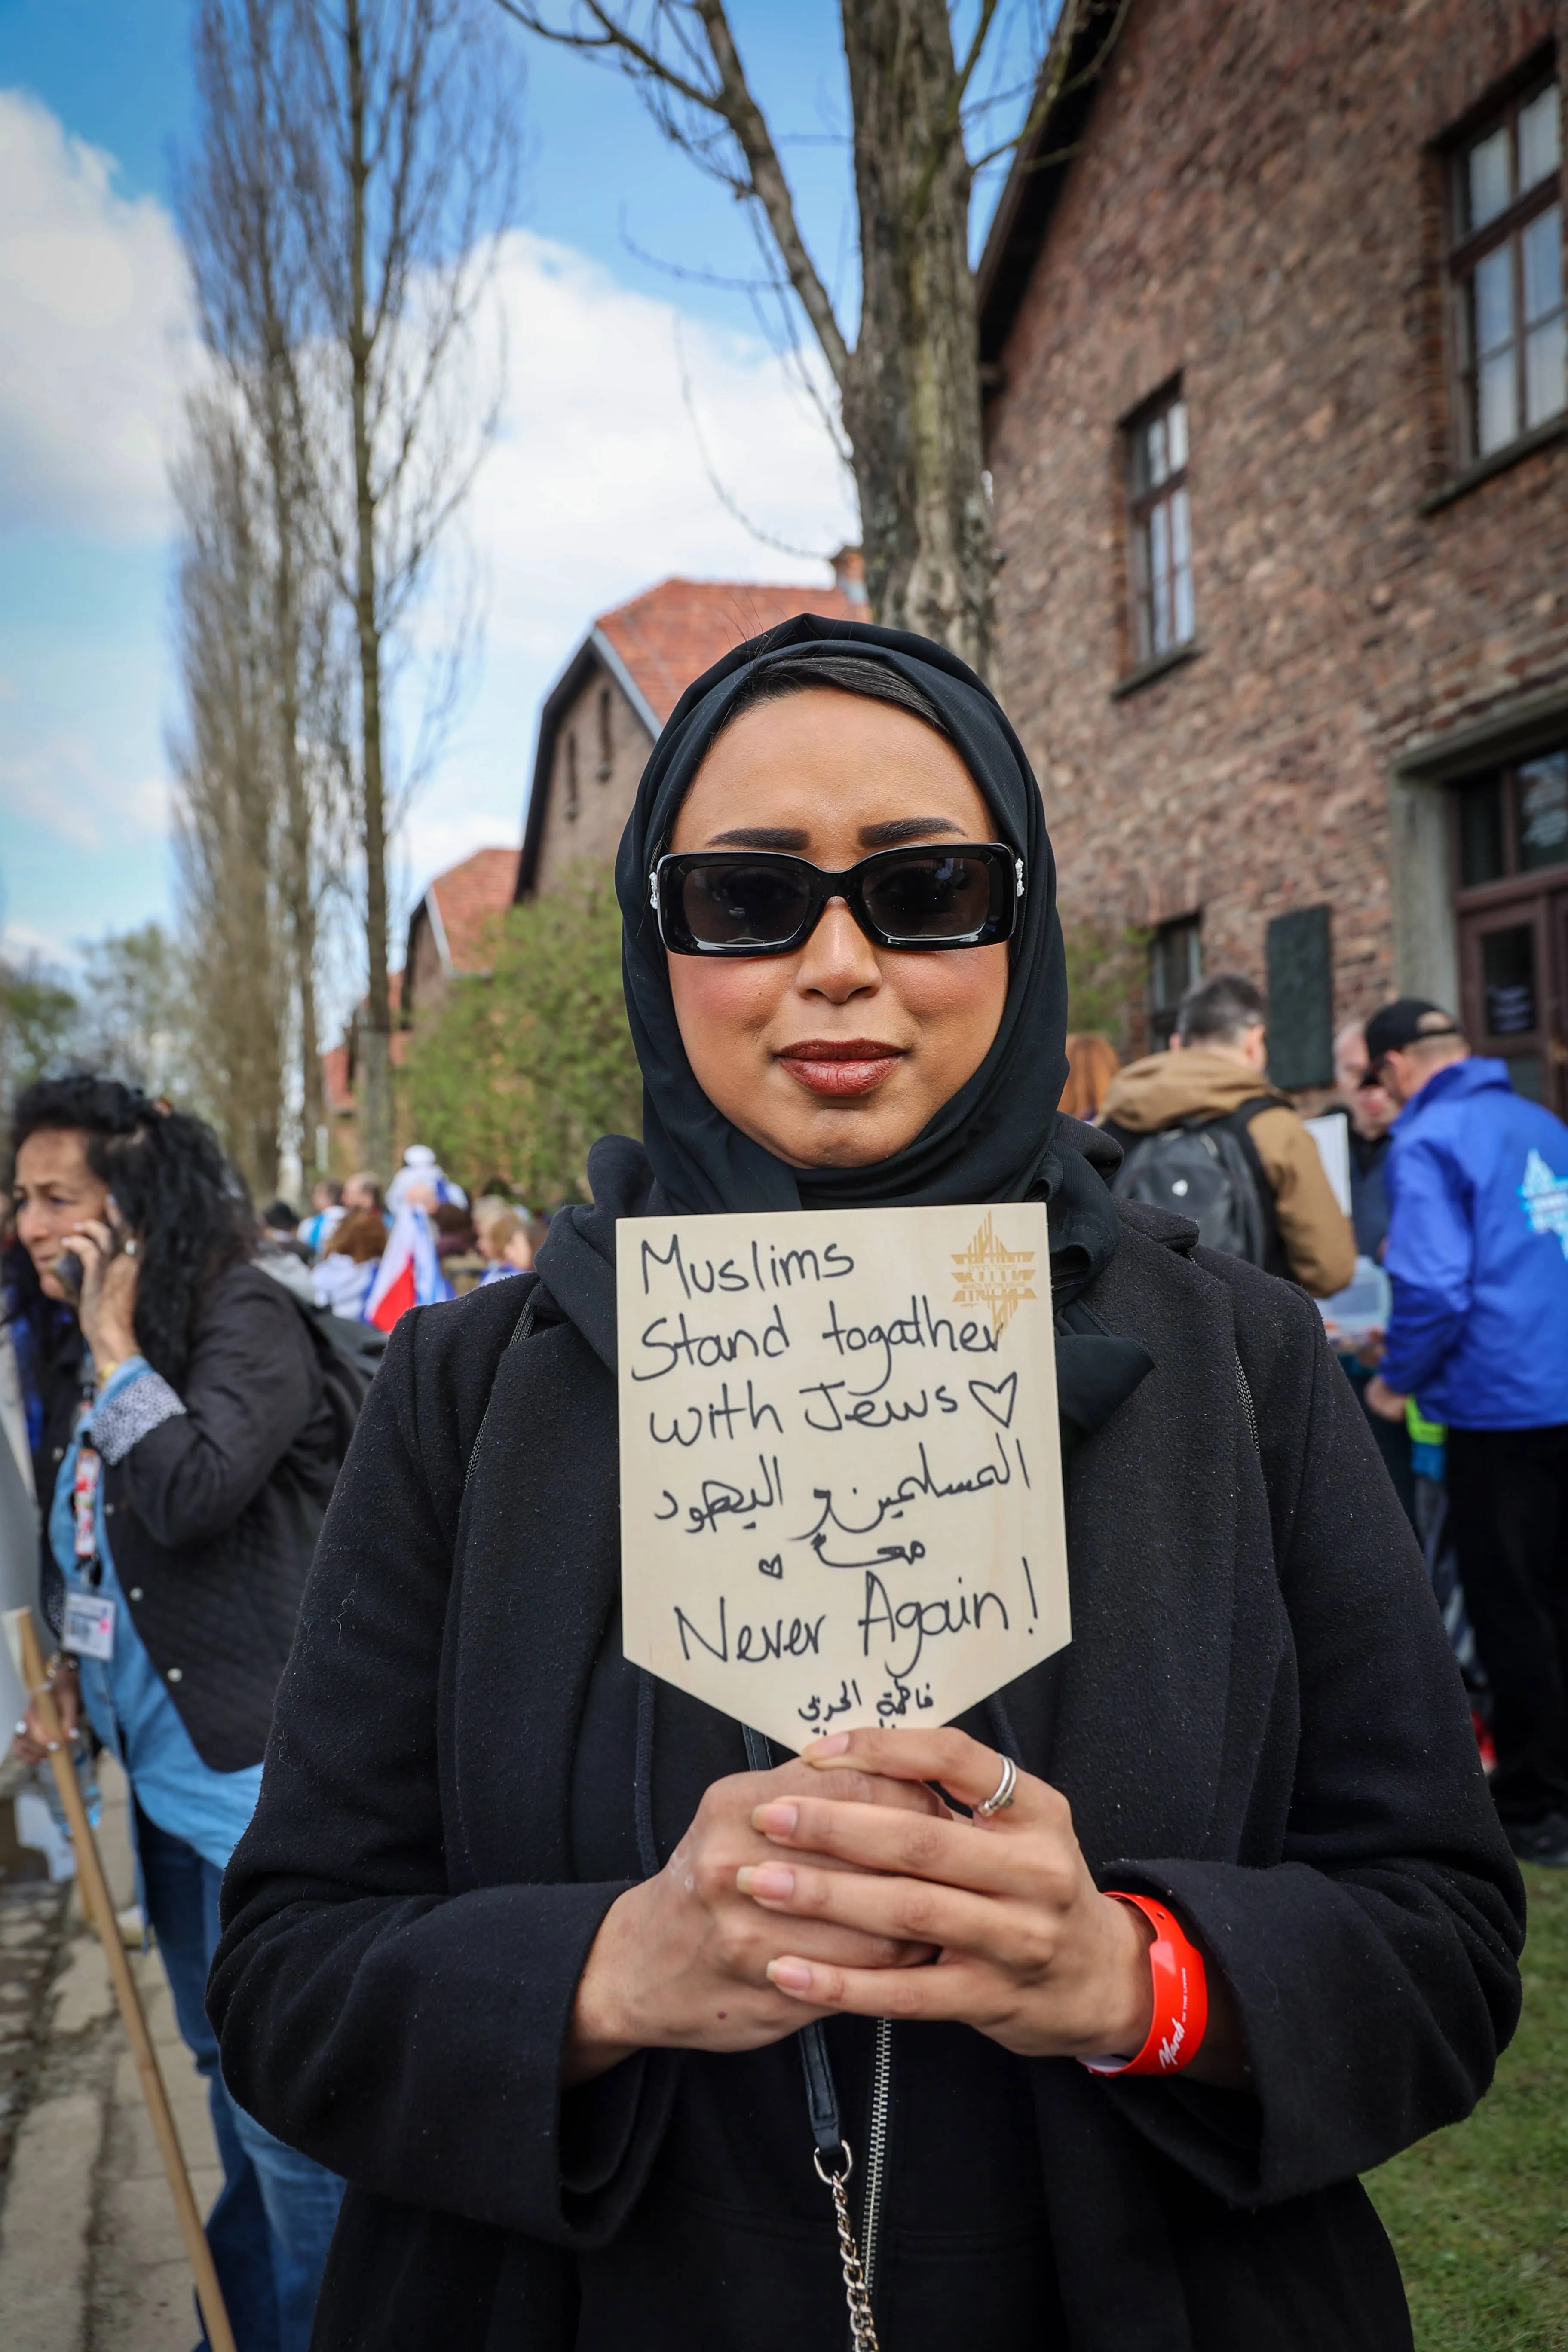 Muslims
Stand togather
with Jews ♡
المسلمين و اليهود
معاً ♡
Never Again!
فاطمة الحربي
March OF THE LIVING